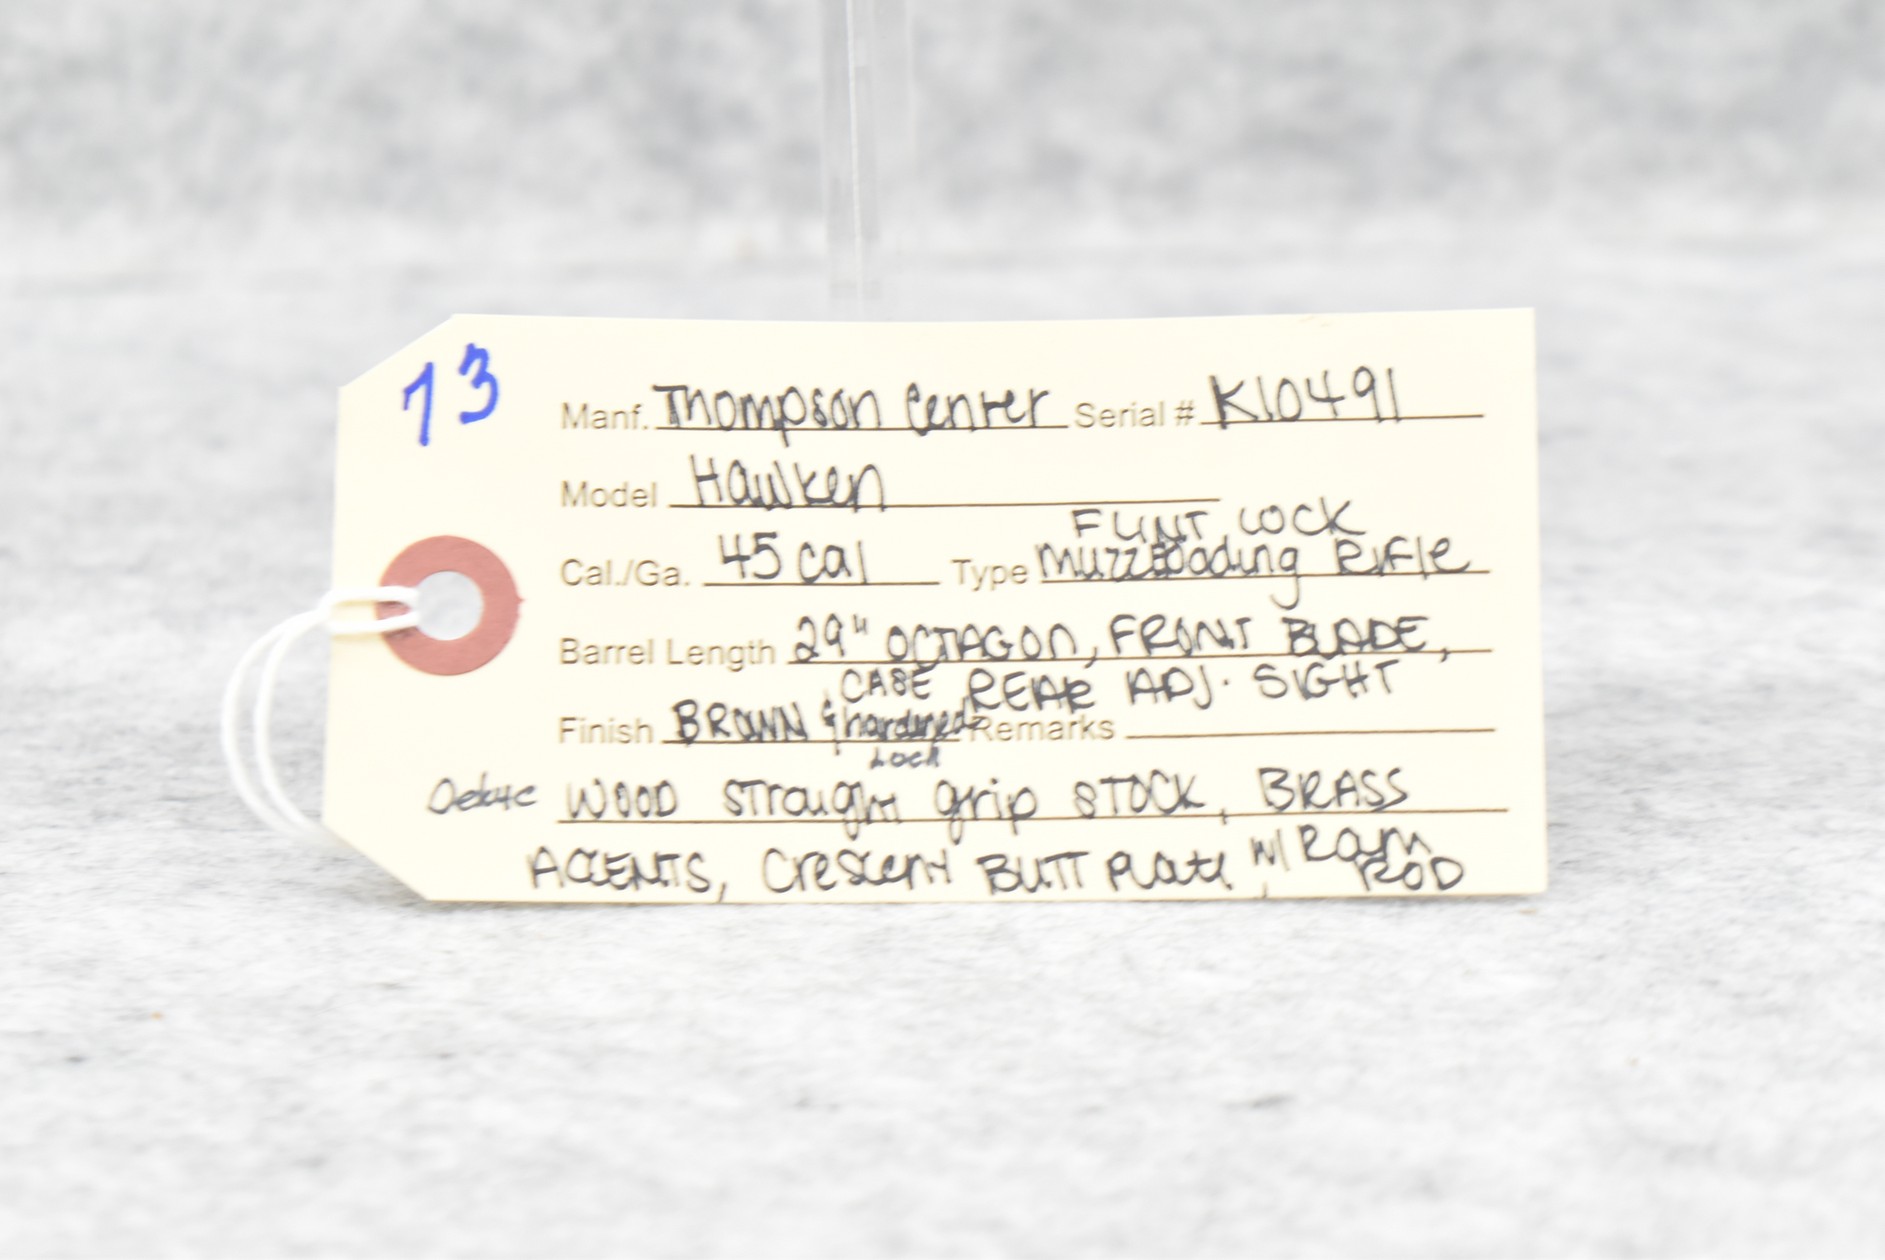 73
Manf. Thompson Center Serial # K10491
Model Hawken
FLINT LOCK
Cal./Ga. 45 cal Type Muzzloading Rifle
Barrel Length 29" OCTAGON, FRONT BLADE,
CASE REAR ADJ. SIGHT
Finish BROWN & hardened Remarks
Lock
WOOD straight grip STOCK, BRASS
ACCENTS, Crescent BUTT Plate, w/ Ram
ROD